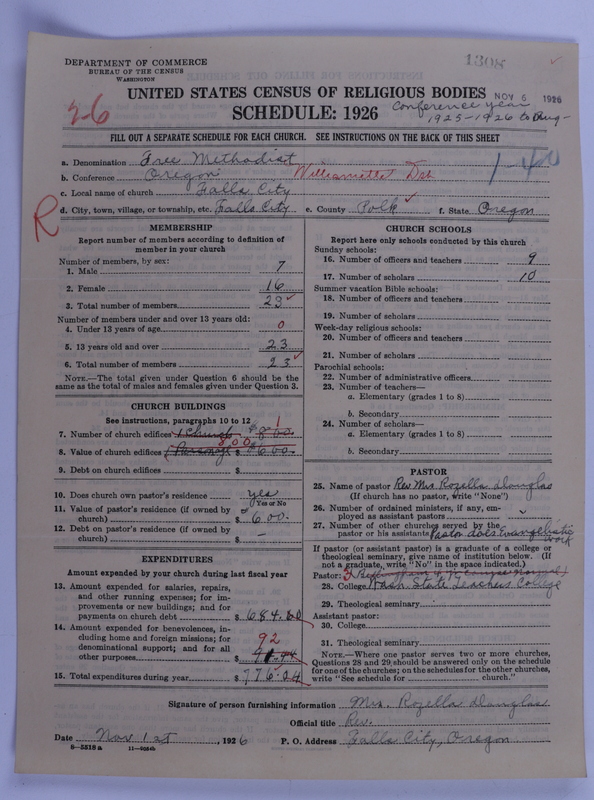 1308
DEPARTMENT OF COMMERCE
BUREAU OF THE CENSUS
WASHINGTON
UNITED STATES CENSUS OF RELIGIOUS BODIES
NOV 6 1926
26
SCHEDULE: 1926
Conference year
1925-1926 to Aug-
FILL OUT A SEPARATE SCHEDULE FOR EACH CHURCH. SEE INSTRUCTIONS ON THE BACK OF THIS SHEET
a. Denomination Free Methodist
b. Conference Oregon Williamettat Dst
c. Local name of church Falls City
R
d. City, town, village, or township, etc. Falls City e. County Polk f. State Oregon
MEMBERSHIP
Report number of members according to definition of
member in your church
Number of members, by sex:
1. Male 7
2. Female 16
3. Total number of members 23
Number of members under and over 13 years old:
4. Under 13 years of age 0
5. 13 years old and over 23
6. Total number of members 23
NOTE.—The total given under Question 6 should be
the same as the total of males and females given under Question 3.
CHURCH BUILDINGS
See instructions, paragraphs 10 to 12
7. Number of church edifices 1 Church $800. 1
8. Value of church edifices 1 Parsonage $600. 800
9. Debt on church edifices $
10. Does church own pastor's residence yes
(Yes or No
11. Value of pastor's residence (if owned by
church) $ 600.
12. Debt on pastor's residence (if owned by
church) $ —
EXPENDITURES
Amount expended by your church during last fiscal year
13. Amount expended for salaries, repairs,
and other running expenses; for im-
provements or new buildings; and for
payments on church debt $ 684.60
14. Amount expended for benevolences, in-
cluding home and foreign missions; for
denominational support; and for all
other purposes $ 92
15. Total expenditures during year $ 776.04
CHURCH SCHOOLS
Report here only schools conducted by this church
Sunday schools:
16. Number of officers and teachers 9
17. Number of scholars 10
Summer vacation Bible schools:
18. Number of officers and teachers
19. Number of scholars
Week-day religious schools:
20. Number of officers and teachers
21. Number of scholars
Parochial schools:
22. Number of administrative officers
23. Number of teachers—
a. Elementary (grades 1 to 8)
b. Secondary
24. Number of scholars—
a. Elementary (grades 1 to 8)
b. Secondary
PASTOR
25. Name of pastor Rev Mrs Rozella Douglas
(If church has no pastor, write "None")
26. Number of ordained ministers, if any, em-
ployed as assistant pastors
27. Number of other churches served by the
pastor or his assistants Pastor does Evangelistic work
If pastor (or assistant pastor) is a graduate of a college or
theological seminary, give name of institution below. (If
not a graduate, write "No" in the space indicated.)
Pastor:
28. College Wash. State Teachers College
29. Theological seminary
Assistant pastor:
30. College
31. Theological seminary
NOTE.—Where one pastor serves two or more churches,
Questions 28 and 29 should be answered only on the schedule
for one of the churches; on the schedules for the other churches,
write "See schedule for church."
Signature of person furnishing information Mrs. Rozella Douglas
Official title Rev.
Date Nov 1st, 1926 P. O. Address Falls City, Oregon
8-5518 a